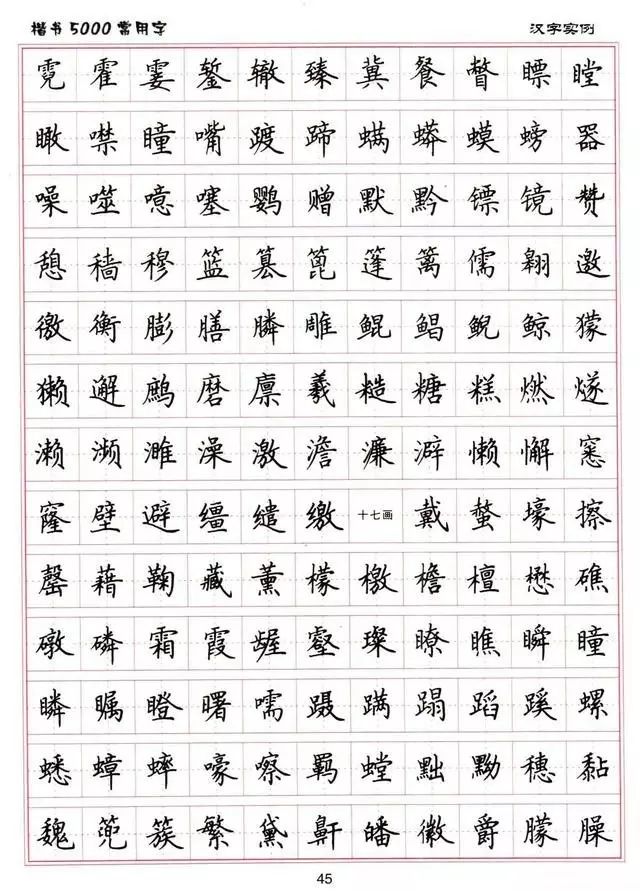 楷书5000常用字 汉字实例
霓霍霎錾辙臻冀餐瞥瞟瞠
瞰噤曈嘴踱蹄螨蟒蟆螃器
噪噬噫噻鹦赠默黔镖镜赞
憩穑穆篮篡篦篷篱儒翱邀
徼衡膨膳膦雕鲲鲳鲵鲸獴
獭邂鹧磨廪羲糙糖糕燃燧
濑濒濉澡激澹濂澼懒懈窸
窿壁避缰缱缴 十七画 戴螫壕擦
罄藉鞠藏薰檬檄檐檀懋礁
礅磷霜霞龌壑璨瞭瞧瞬瞳
瞵瞩瞪曙嚅蹑蹒蹋蹈蹊螺
蟋蟑蟀嚎嚓羁螳黜黝穗黏
魏篼簇繁黛鼾皤徽爵朦臊
45